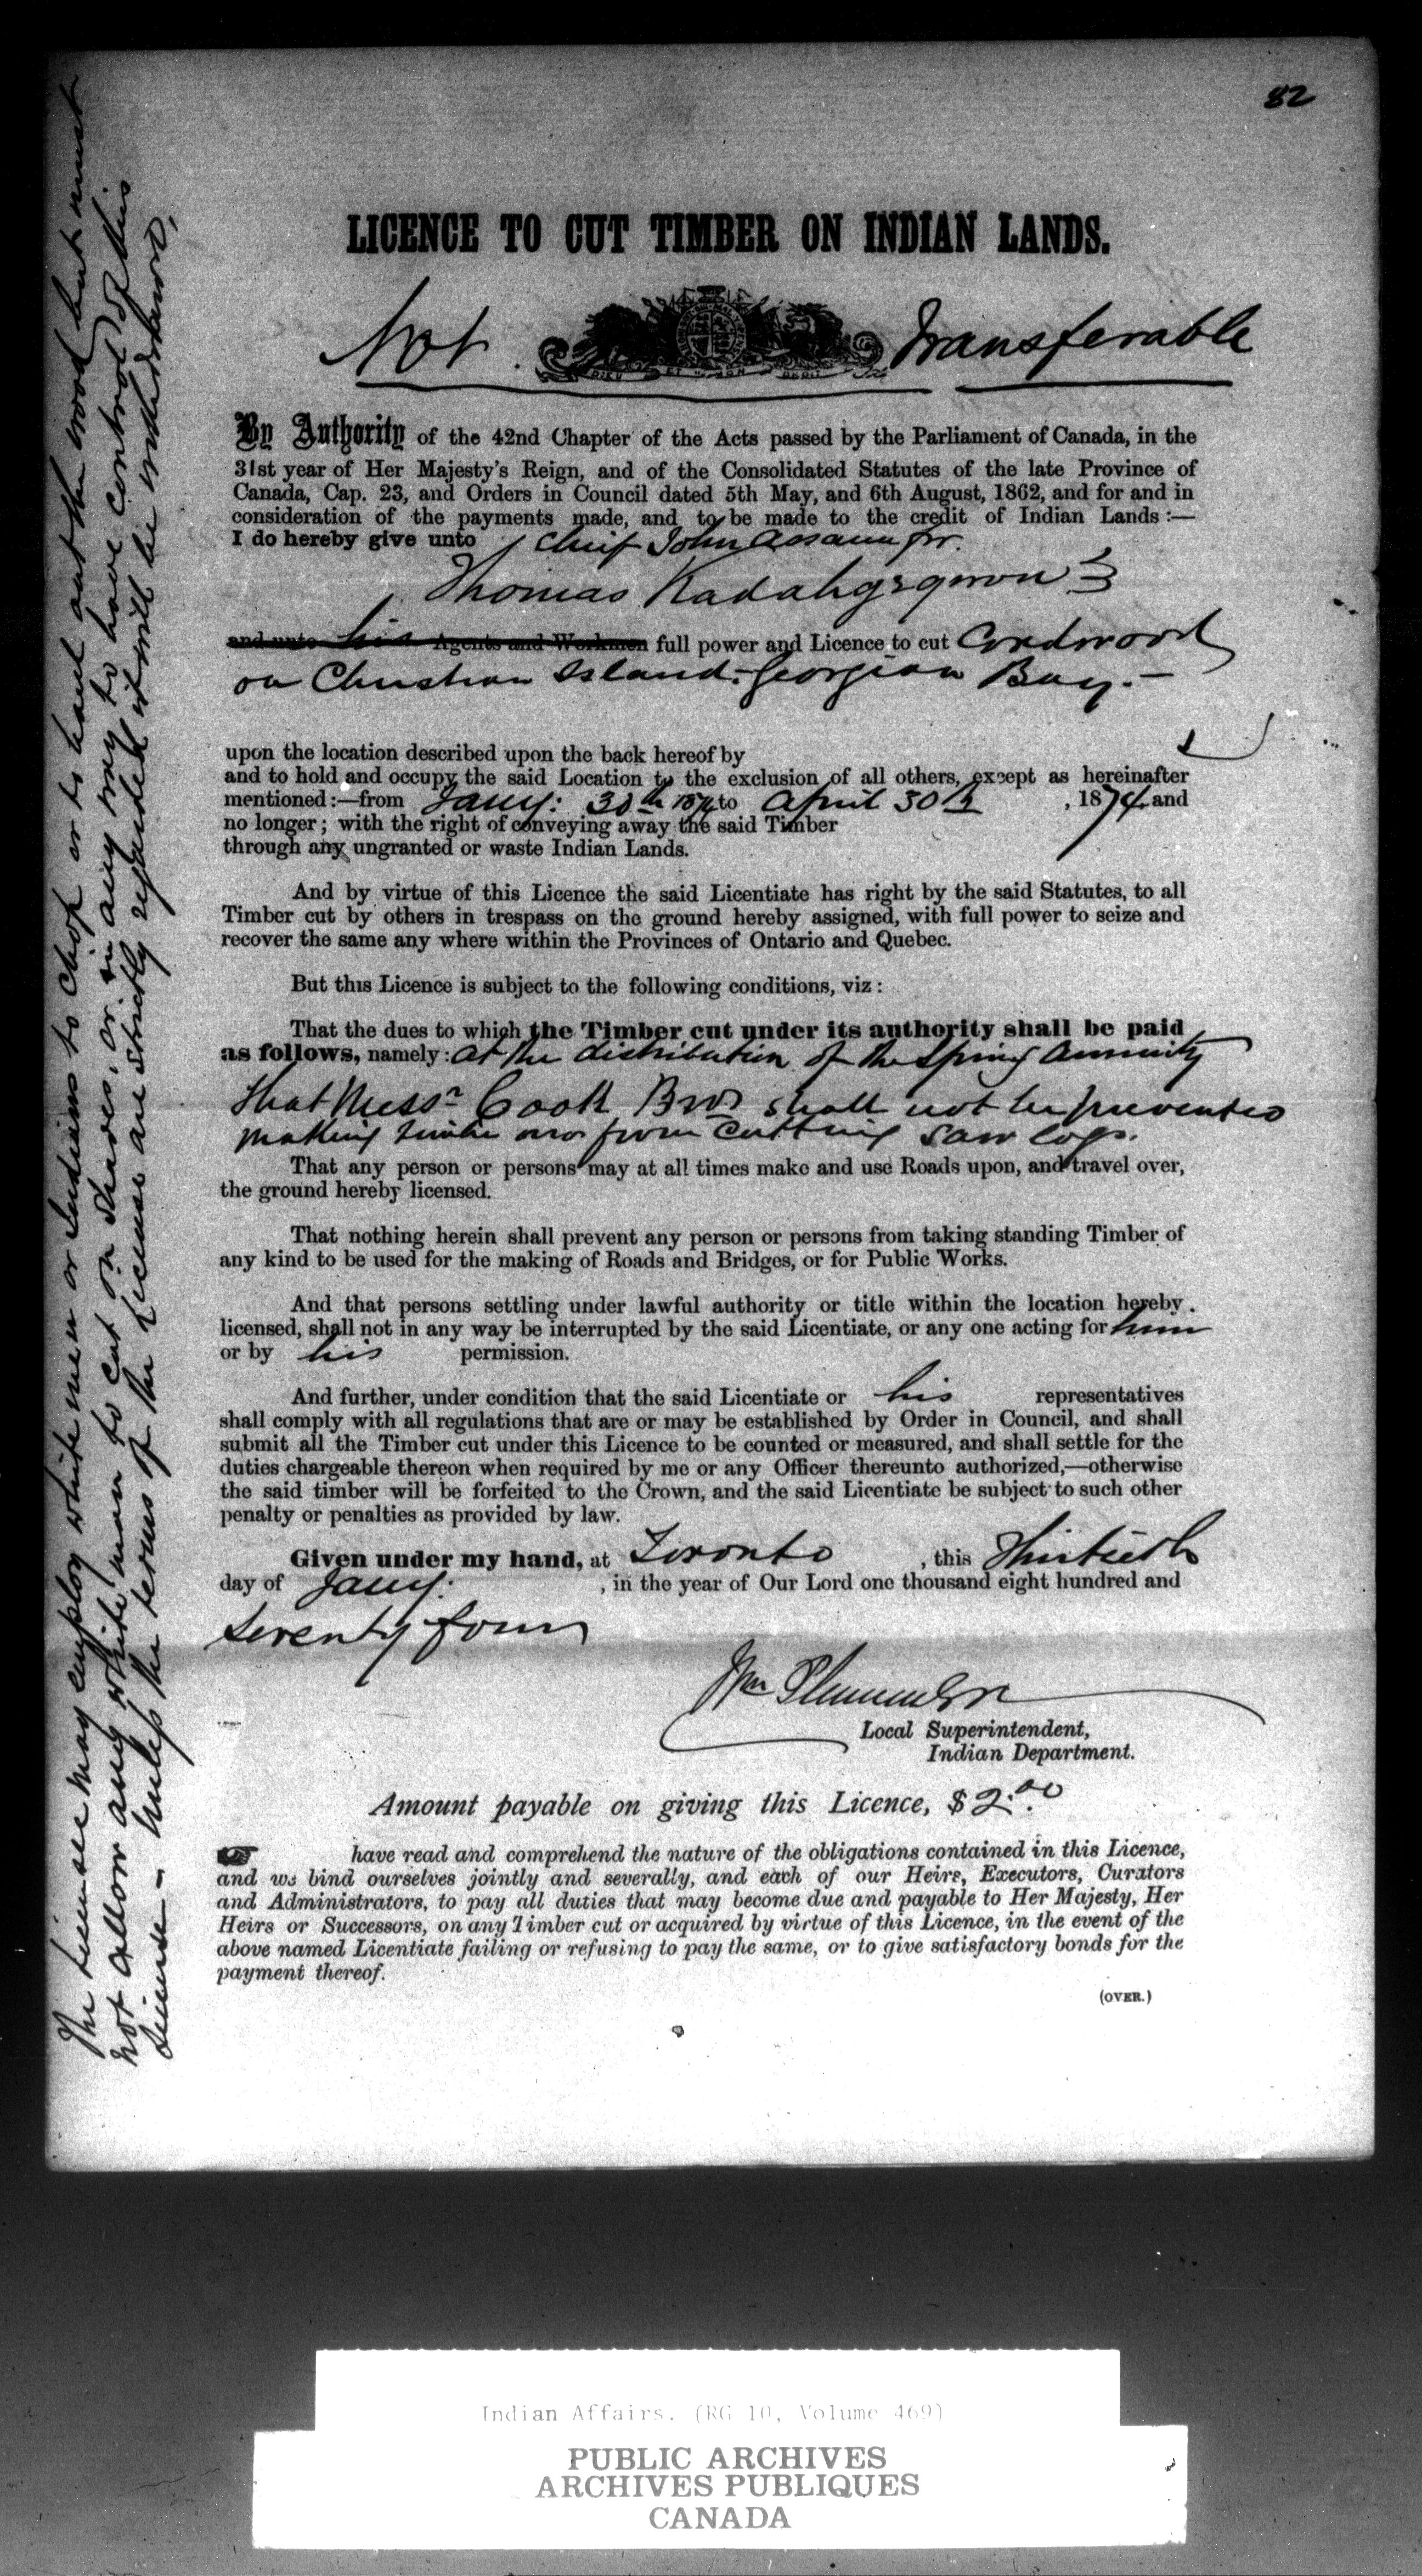 82
LICENCE TO CUT TIMBER ON INDIAN LANDS.
Not Transferable
DIEU ET MON DROIT
By Authority of the 42nd Chapter of the Acts passed by the Parliament of Canada, in the
31st year of Her Majesty's Reign, and of the Consolidated Statutes of the late Province of
Canada, Cap. 23, and Orders in Council dated 5th May, and 6th August, 1862, and for and in
consideration of the payments made, and to be made to the credit of Indian Lands :—
I do hereby give unto Chief John Assance for
Thomas
and unto his Agents and Workmen full power and Licence to cut Cordwood
on Christian Island, Georgian Bay.—
upon the location described upon the back hereof by
and to hold and occupy the said Location to the exclusion of all others, except as hereinafter
mentioned:—from Jany: 30th 1874 to April 30th , 1874 and
no longer; with the right of conveying away the said Timber
through any ungranted or waste Indian Lands.
And by virtue of this Licence the said Licentiate has right by the said Statutes, to all
Timber cut by others in trespass on the ground hereby assigned, with full power to seize and
recover the same any where within the Provinces of Ontario and Quebec.
But this Licence is subject to the following conditions, viz:
That the dues to which the Timber cut under its authority shall be paid
as follows, namely: at the distribution of the Spring Annuity
that Messrs Cook Bros shall not be prevented
making timber from cutting saw logs.
That any person or persons may at all times make and use Roads upon, and travel over,
the ground hereby licensed.
That nothing herein shall prevent any person or persons from taking standing Timber of
any kind to be used for the making of Roads and Bridges, or for Public Works.
And that persons settling under lawful authority or title within the location hereby
licensed, shall not in any way be interrupted by the said Licentiate, or any one acting for him
or by his permission.
And further, under condition that the said Licentiate or his representatives
shall comply with all regulations that are or may be established by Order in Council, and shall
submit all the Timber cut under this Licence to be counted or measured, and shall settle for the
duties chargeable thereon when required by me or any Officer thereunto authorized,—otherwise
the said timber will be forfeited to the Crown, and the said Licentiate be subject to such other
penalty or penalties as provided by law.
Given under my hand, at Toronto , this Thirtieth
day of Jany. , in the year of Our Lord one thousand eight hundred and
seventy four
Wm Plummer
Local Superintendent,
Indian Department.
Amount payable on giving this Licence, $ 2.00
have read and comprehend the nature of the obligations contained in this Licence,
and we bind ourselves jointly and severally, and each of our Heirs, Executors, Curators
and Administrators, to pay all duties that may become due and payable to Her Majesty, Her
Heirs or Successors, on any Timber cut or acquired by virtue of this Licence, in the event of the
above named Licentiate failing or refusing to pay the same, or to give satisfactory bonds for the
payment thereof.
(OVER.)
The licensee may employ white men or Indians to chop or to haul out the wood but must
not allow any white man to cut on shares, or in any way to have control of this
license — unless the terms of the license are strictly regarded it will be
Indian Affairs. (RG 10, Volume 469)
PUBLIC ARCHIVES
ARCHIVES PUBLIQUES
CANADA